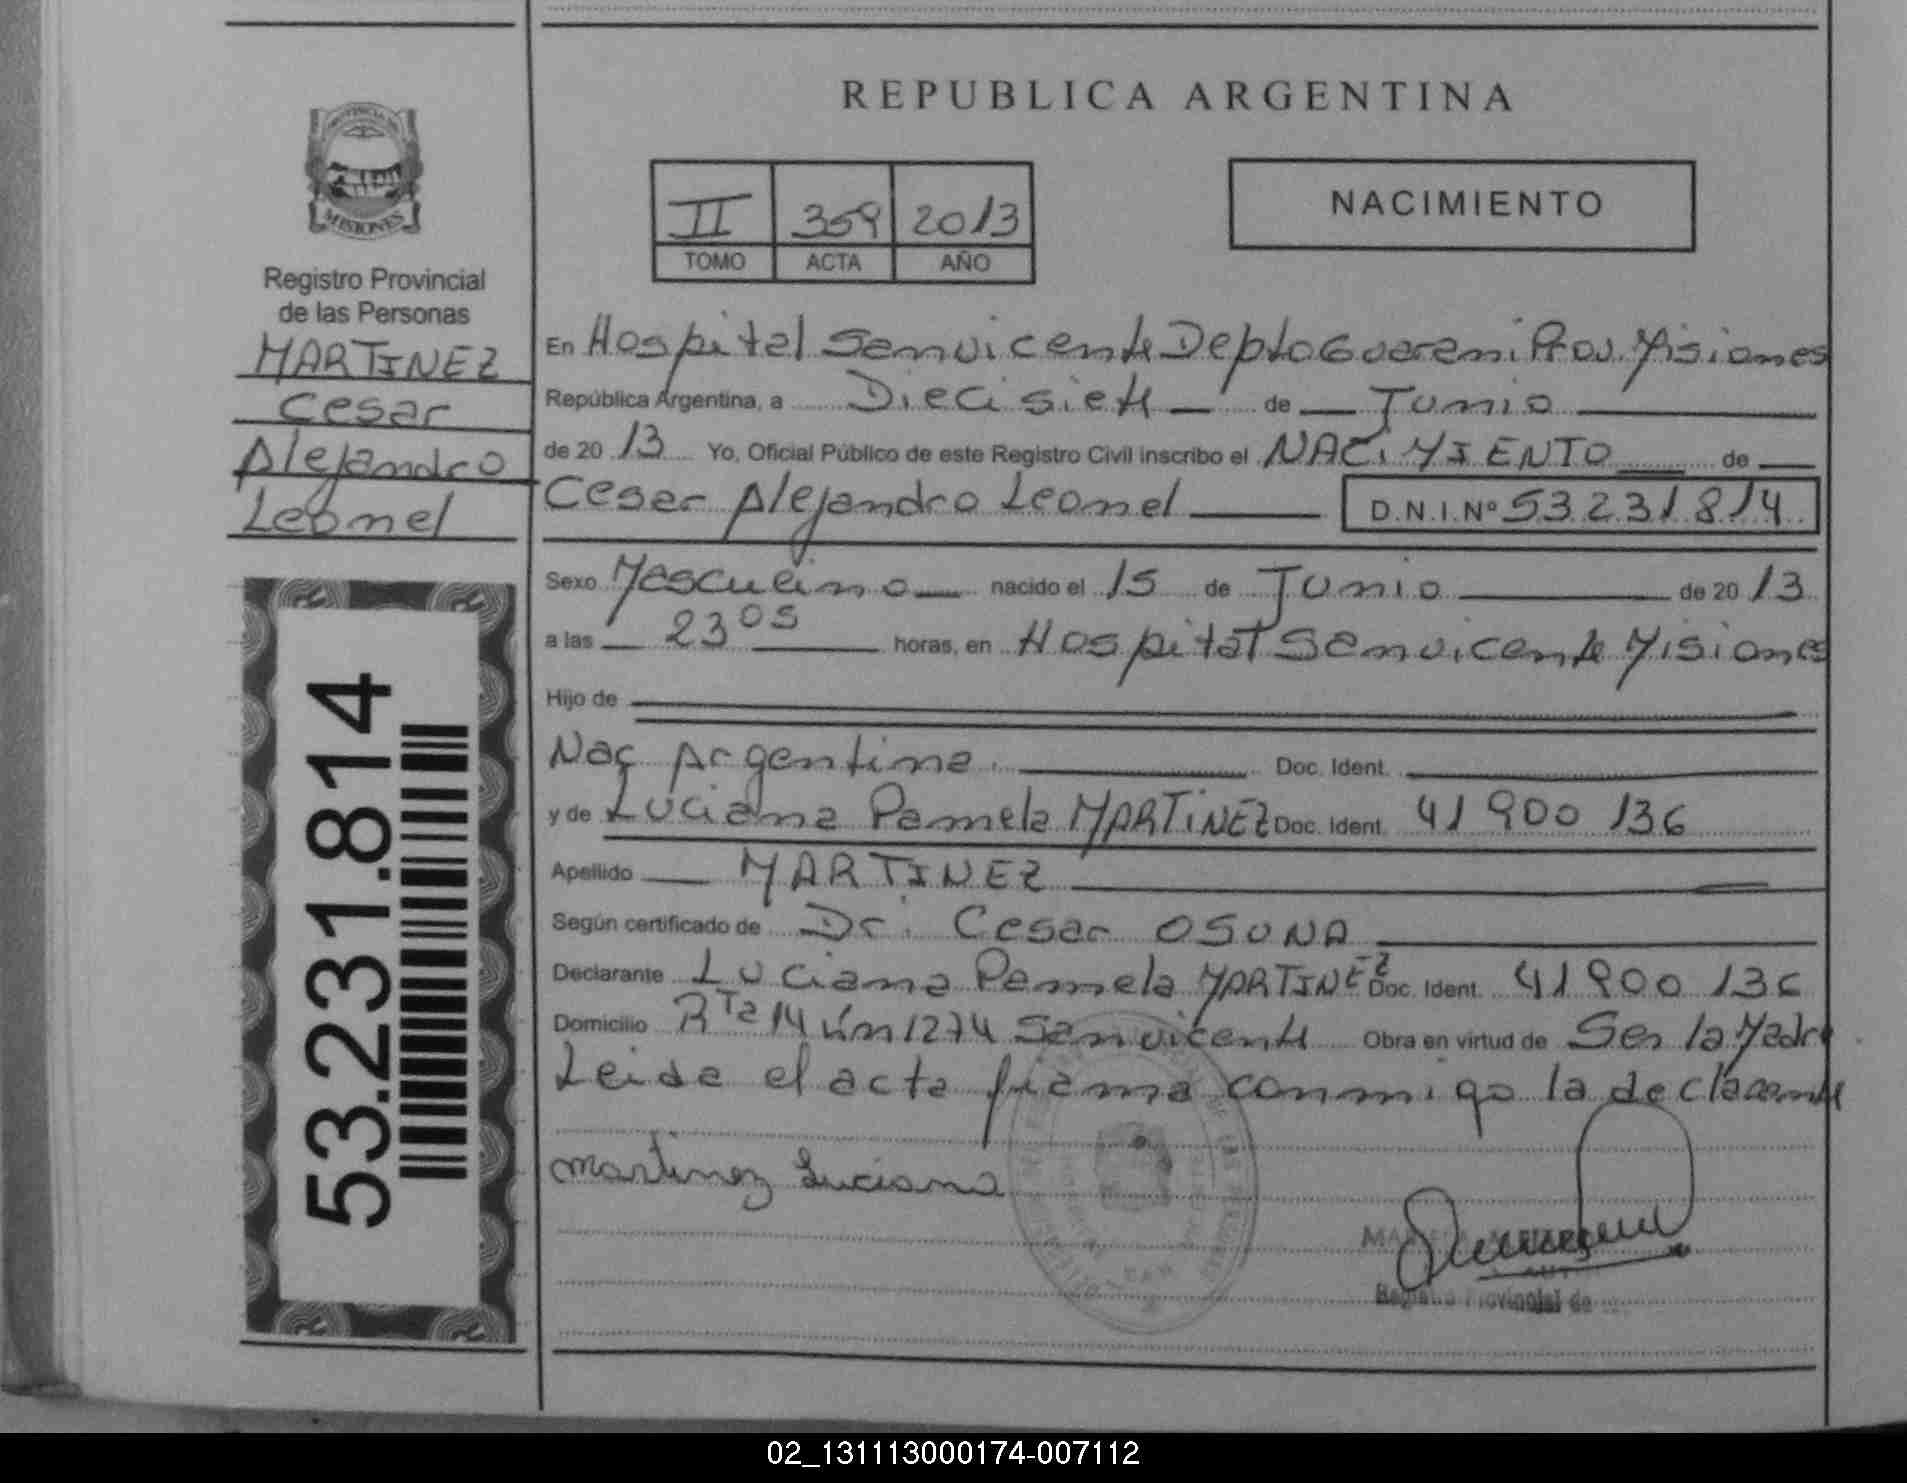 REPUBLICA ARGENTINA
PROVINCIA DE
MISIONES
Registro Provincial
de las Personas
MARTINEZ
Cesar
Alejandro
Leonel
53.231.814
II 359 2013
TOMO ACTA AÑO
NACIMIENTO
En Hospital San vicente Depto Guarani Prov. Misiones
República Argentina, a Diecisiete de Junio
de 20 13 Yo, Oficial Público de este Registro Civil inscribo el NACIMIENTO de
Cesar Alejandro Leonel D.N.I.Nº 53231814
Sexo Masculino nacido el 15 de Junio de 20 13
a las 23 05 horas, en Hospital San vicente Misiones
Hijo de
Nac Argentina. Doc. Ident.
y de Luciana Pamela MARTINEZ Doc. Ident. 41 900 136
Apellido MARTINEZ
Según certificado de Dr. Cesar OSUNA
Declarante Luciana Pamela MARTINEZ Doc. Ident. 41 900 136
Domicilio Rta 14 km 1274 San vicente Obra en virtud de Ser la Madre
Leida el acta firma conmigo la declarante
Martinez Luciana
Registro Provincial de
02_131113000174-007112